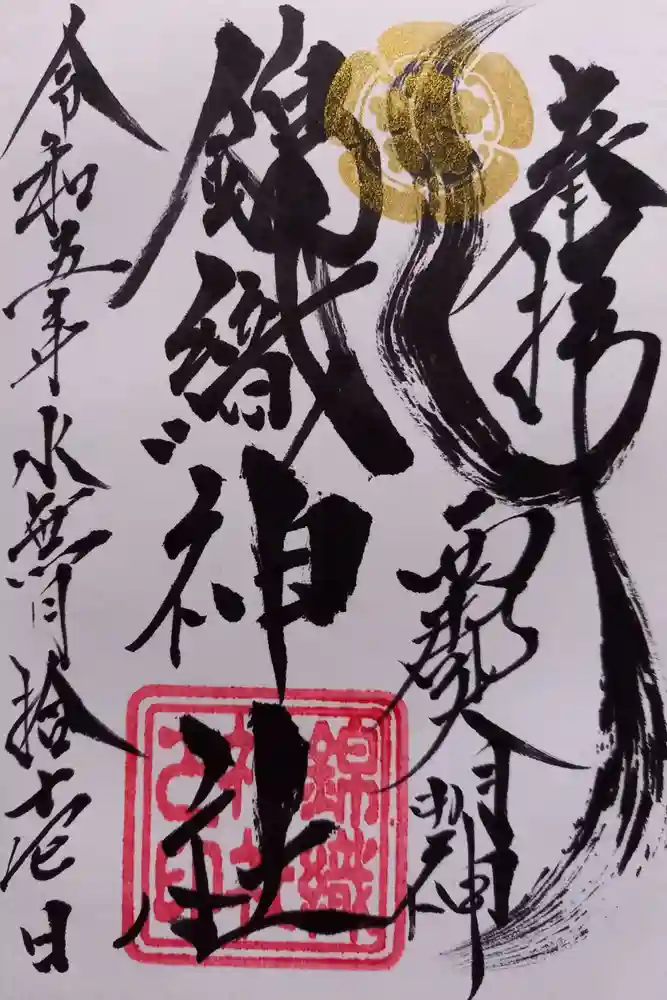 奉拝
錦織神社
令和五年水無月拾壱日
錦織
神社
之印